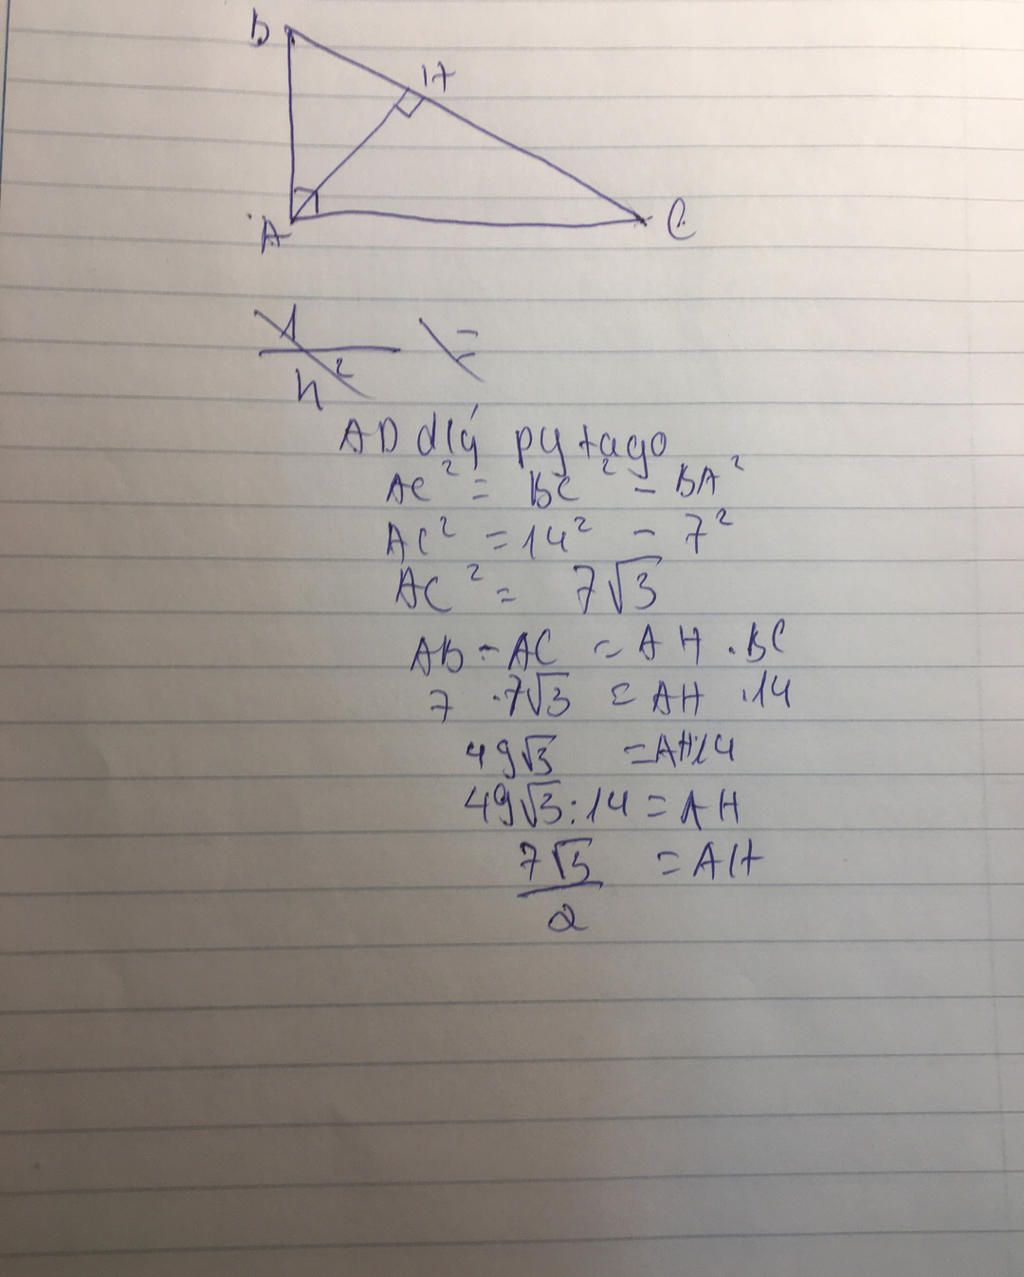 B
H
A
C
1
h²
=
AD dlý pytago
AC² = BC² - BA²
AC² = 14² - 7²
AC² = 7√3
AB - AC = AH . BC
7 . 7√3 = AH . 14
49√3 = AH.14
49√3 : 14 = AH
7√3 = AH
2